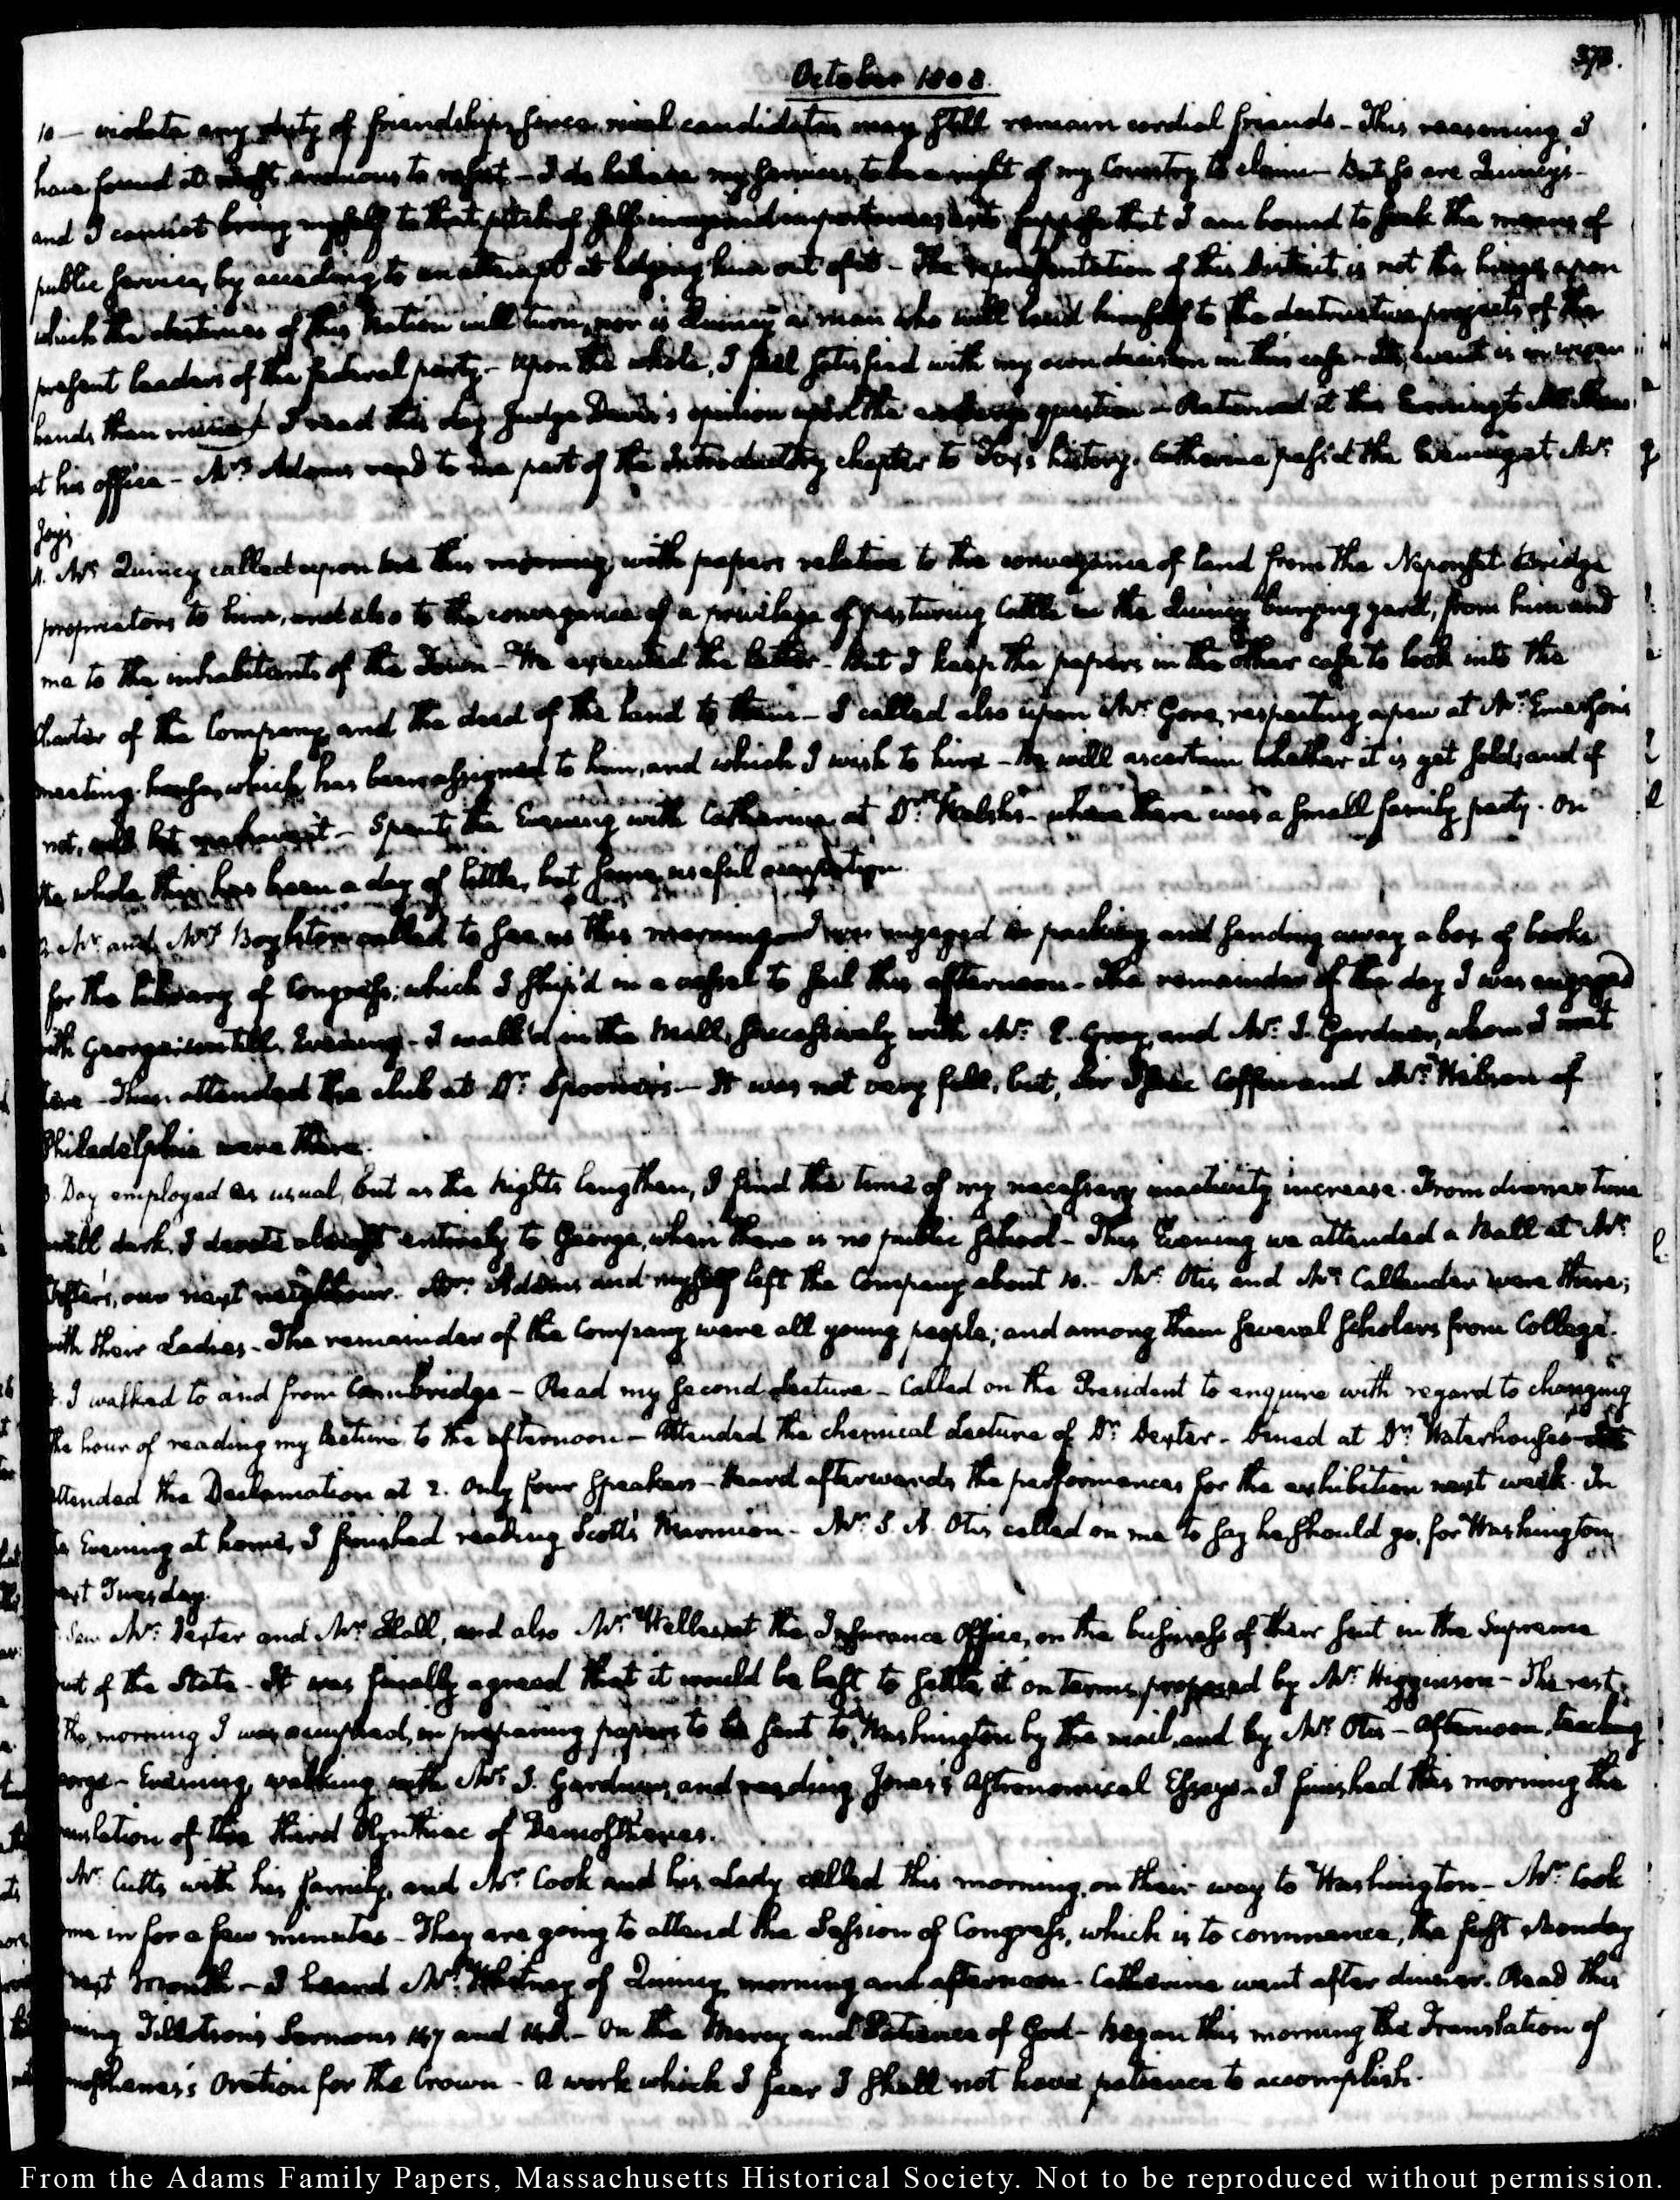 373.
October 1808.
10 — violate any duty of friendship, since rival candidates may still remain cordial friends - This reasoning I
have found it most arduous to resist - I do believe my services to be a right of my Country to claim - But so are Quincy's -
and I cannot bring myself to that pitch of self-imagined importance, as to suppose that I am bound to seek the means of
public service, by acceding to an attempt at lodging him out of it - The representation of this District is not the hinge upon
which the destinies of this Nation will turn, nor is Quincy a man who will lend himself to the destructive projects of the
present leaders of the federal party - Upon the whole, I feel satisfied with my own decision in this case - Its event is in wiser
hands than mine. I read this day Judge Davis's opinion upon the embargo question - Returned it this Evening to
at his office - Mrs Adams read to me part of the Introductory chapter to Fox's history. Catherine pass'd the Evening at Mr
Joy's
11. Mr Quincy called upon me this morning with papers relative to the conveyance of land from the Neponset Bridge
proprietors to him, and also to the conveyance of a privilege of pasturing Cattle in the Quincy burying yard, from him and
me to the inhabitants of the Town - We executed the latter - But I keep the papers in the other case to look into the
Charter of the Company, and the deed of the land to them - I called also upon Mr Gore, respecting a pew at Mr Emerson's
meeting-house, which has been assigned to him, and which I wish to hire - He will ascertain whether it is yet sold; and if
not, will let me have it - Spent the Evening with Catherine at Dr Welsh's - where there was a small family party. On
the whole this has been a day of little, but some useful occupation.
2. Mr and Mrs Boylston called to see us this morning I was engaged in packing and sending away a box of books
for the Library of Congress; which I ship'd in a vessel to sail this afternoon - The remainder of the day I was engaged
with George; until Evening - I walk'd in the Mall, successively with Mr E. Gray, and Mr S. Gardner, whom I met
there - Then attended the club at Dr Spooner's - It was not very full, but, Sir Isaac Coffin and Mr Wilson of
Philadelphia were there.
3. Day employed as usual, but as the Nights lengthen, I find the time of my necessary inactivity increase. From dinner time
untill dark, I devote almost entirely to George, when there is no public School - This Evening we attended a Ball at Mr
Foster's, our next neighbour. Mrs Adams and myself left the Company about 10. - Mr Otis and Mr Callender were there;
with their Ladies - The remainder of the Company were all young people; and among them several scholars from College.
4. I walked to and from Cambridge - Read my second Lecture - Called on the President to enquire with regard to changing
the hour of reading my Lecture to the afternoon - Attended the chemical Lecture of Dr Dexter - Dined at Dr Waterhouse's -
attended the Declamation at 2. Only four Speakers - Heard afterwards the performances for the exhibition next week. In
the Evening at home, I finished reading Scott's Marmion - Mr S. A. Otis called on me to say he should go for Washington
next Tuesday.
Saw Mr Dexter and Mr Hall, and also Mr Welles at the Insurance Office, on the business of their suit in the Supreme
Court of the State - It was finally agreed that it would be best to settle it on terms proposed by Mr Higginson - The rest
of the morning I was occupied, in preparing papers to be sent to Washington by the mail, and by Mr Otis - Afternoon, teaching
George - Evening, walking with Mr S. Gardner, and reading Jones's Astronomical Essays - I finished this morning the
translation of the third Olynthiac of Demosthenes.
Mr Cutts with his family, and Mr Cook and his Lady called this morning, on their way to Washington - Mr Cook
came in for a few minutes - They are going to attend the Session of Congress, which is to commence, the first Monday
next month - I heard Mr Whitney of Quincy, morning and afternoon - Catherine went after dinner. Read this
evening Tillotson's Sermons 147 and 148. - On the Mercy and Patience of God - Began this morning the Translation of
Demosthenes's Oration for the Crown - A work which I fear I shall not have patience to accomplish.
From the Adams Family Papers, Massachusetts Historical Society. Not to be reproduced without permission.